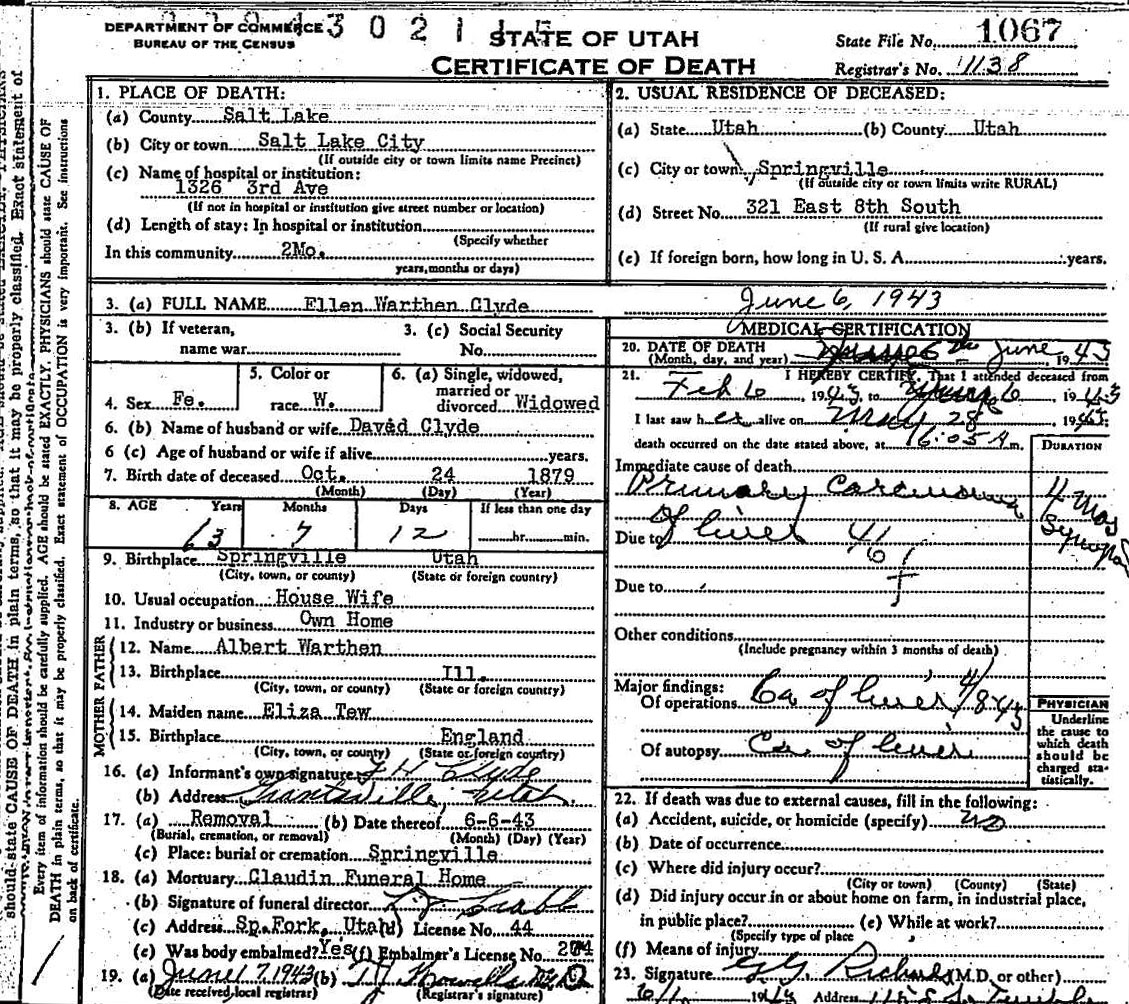 DEPARTMENT OF COMMERCE
BUREAU OF THE CENSUS
3 0 2 1
STATE OF UTAH
CERTIFICATE OF DEATH
State File No. 1067
Registrar's No. 1138
1. PLACE OF DEATH:
(a) County Salt Lake
(b) City or town Salt Lake City
(If outside city or town limits name Precinct)
(c) Name of hospital or institution:
1326 3rd Ave
(If not in hospital or institution give street number or location)
(d) Length of stay: In hospital or institution
(Specify whether
In this community 2Mo.
years, months or days)
2. USUAL RESIDENCE OF DECEASED:
(a) State Utah (b) County Utah
(c) City or town Springville
(If outside city or town limits write RURAL)
(d) Street No. 321 East 8th South
(If rural give location)
(e) If foreign born, how long in U. S. A. years.
3. (a) FULL NAME Ellen Warthen Clyde
June 6, 1943
3. (b) If veteran,
name war
3. (c) Social Security
No.
4. Sex Fe.
5. Color or
race W.
6. (a) Single, widowed,
married or
divorced Widowed
6. (b) Name of husband or wife David Clyde
6 (c) Age of husband or wife if alive years.
7. Birth date of deceased Oct. 24 1879
(Month) (Day) (Year)
8. AGE Years Months Days If less than one day
63 7 12 hr. min.
9. Birthplace Springville Utah
(City, town, or county) (State or foreign country)
10. Usual occupation House Wife
11. Industry or business Own Home
FATHER
12. Name Albert Warthen
13. Birthplace Ill.
(City, town, or county) (State or foreign country)
MOTHER
14. Maiden name Eliza Tew
15. Birthplace England
(City, town, or county) (State or foreign country)
16. (a) Informant's own signature
(b) Address Grantsville, Utah
17. (a) Removal (b) Date thereof 6-6-43
(Burial, cremation, or removal) (Month) (Day) (Year)
(c) Place: burial or cremation Springville
18. (a) Mortuary Claudin Funeral Home
(b) Signature of funeral director
(c) Address Sp. Fork, Utah (d) License No. 44
(e) Was body embalmed? Yes (f) Embalmer's License No.
19. (a) June 7, 1943 (b) T. J. Howells
(Date received local registrar) (Registrar's signature)
MEDICAL CERTIFICATION
20. DATE OF DEATH
(Month, day, and year) 6th June, 1943
21. I HEREBY CERTIFY, That I attended deceased from
Feb 6, 1943 to 6, 1943
I last saw her alive on May 28 1943;
death occurred on the date stated above, at m.
DURATION
Immediate cause of death
Primary Carcinoma 4 Mos
of liver
Due to
Due to
Other conditions
(Include pregnancy within 3 months of death)
Major findings:
Of operations Ca of liver 4/8 43
Of autopsy Ca. of liver
PHYSICIAN
Underline
the cause to
which death
should be
charged sta-
tistically.
22. If death was due to external causes, fill in the following:
(a) Accident, suicide, or homicide (specify) no
(b) Date of occurrence
(c) Where did injury occur?
(City or town) (County) (State)
(d) Did injury occur in or about home on farm, in industrial place,
in public place? (e) While at work?
(Specify type of place
(f) Means of injury
23. Signature G. G. Richards (M.D. or other)
Address
should state CAUSE OF DEATH in plain terms, so that it may be properly classified. Exact statement of
Every item of information should be carefully supplied. AGE should be stated EXACTLY. PHYSICIANS should state CAUSE OF
DEATH in plain terms, so that it may be properly classified. Exact statement of OCCUPATION is very important. See instructions
on back of certificate.